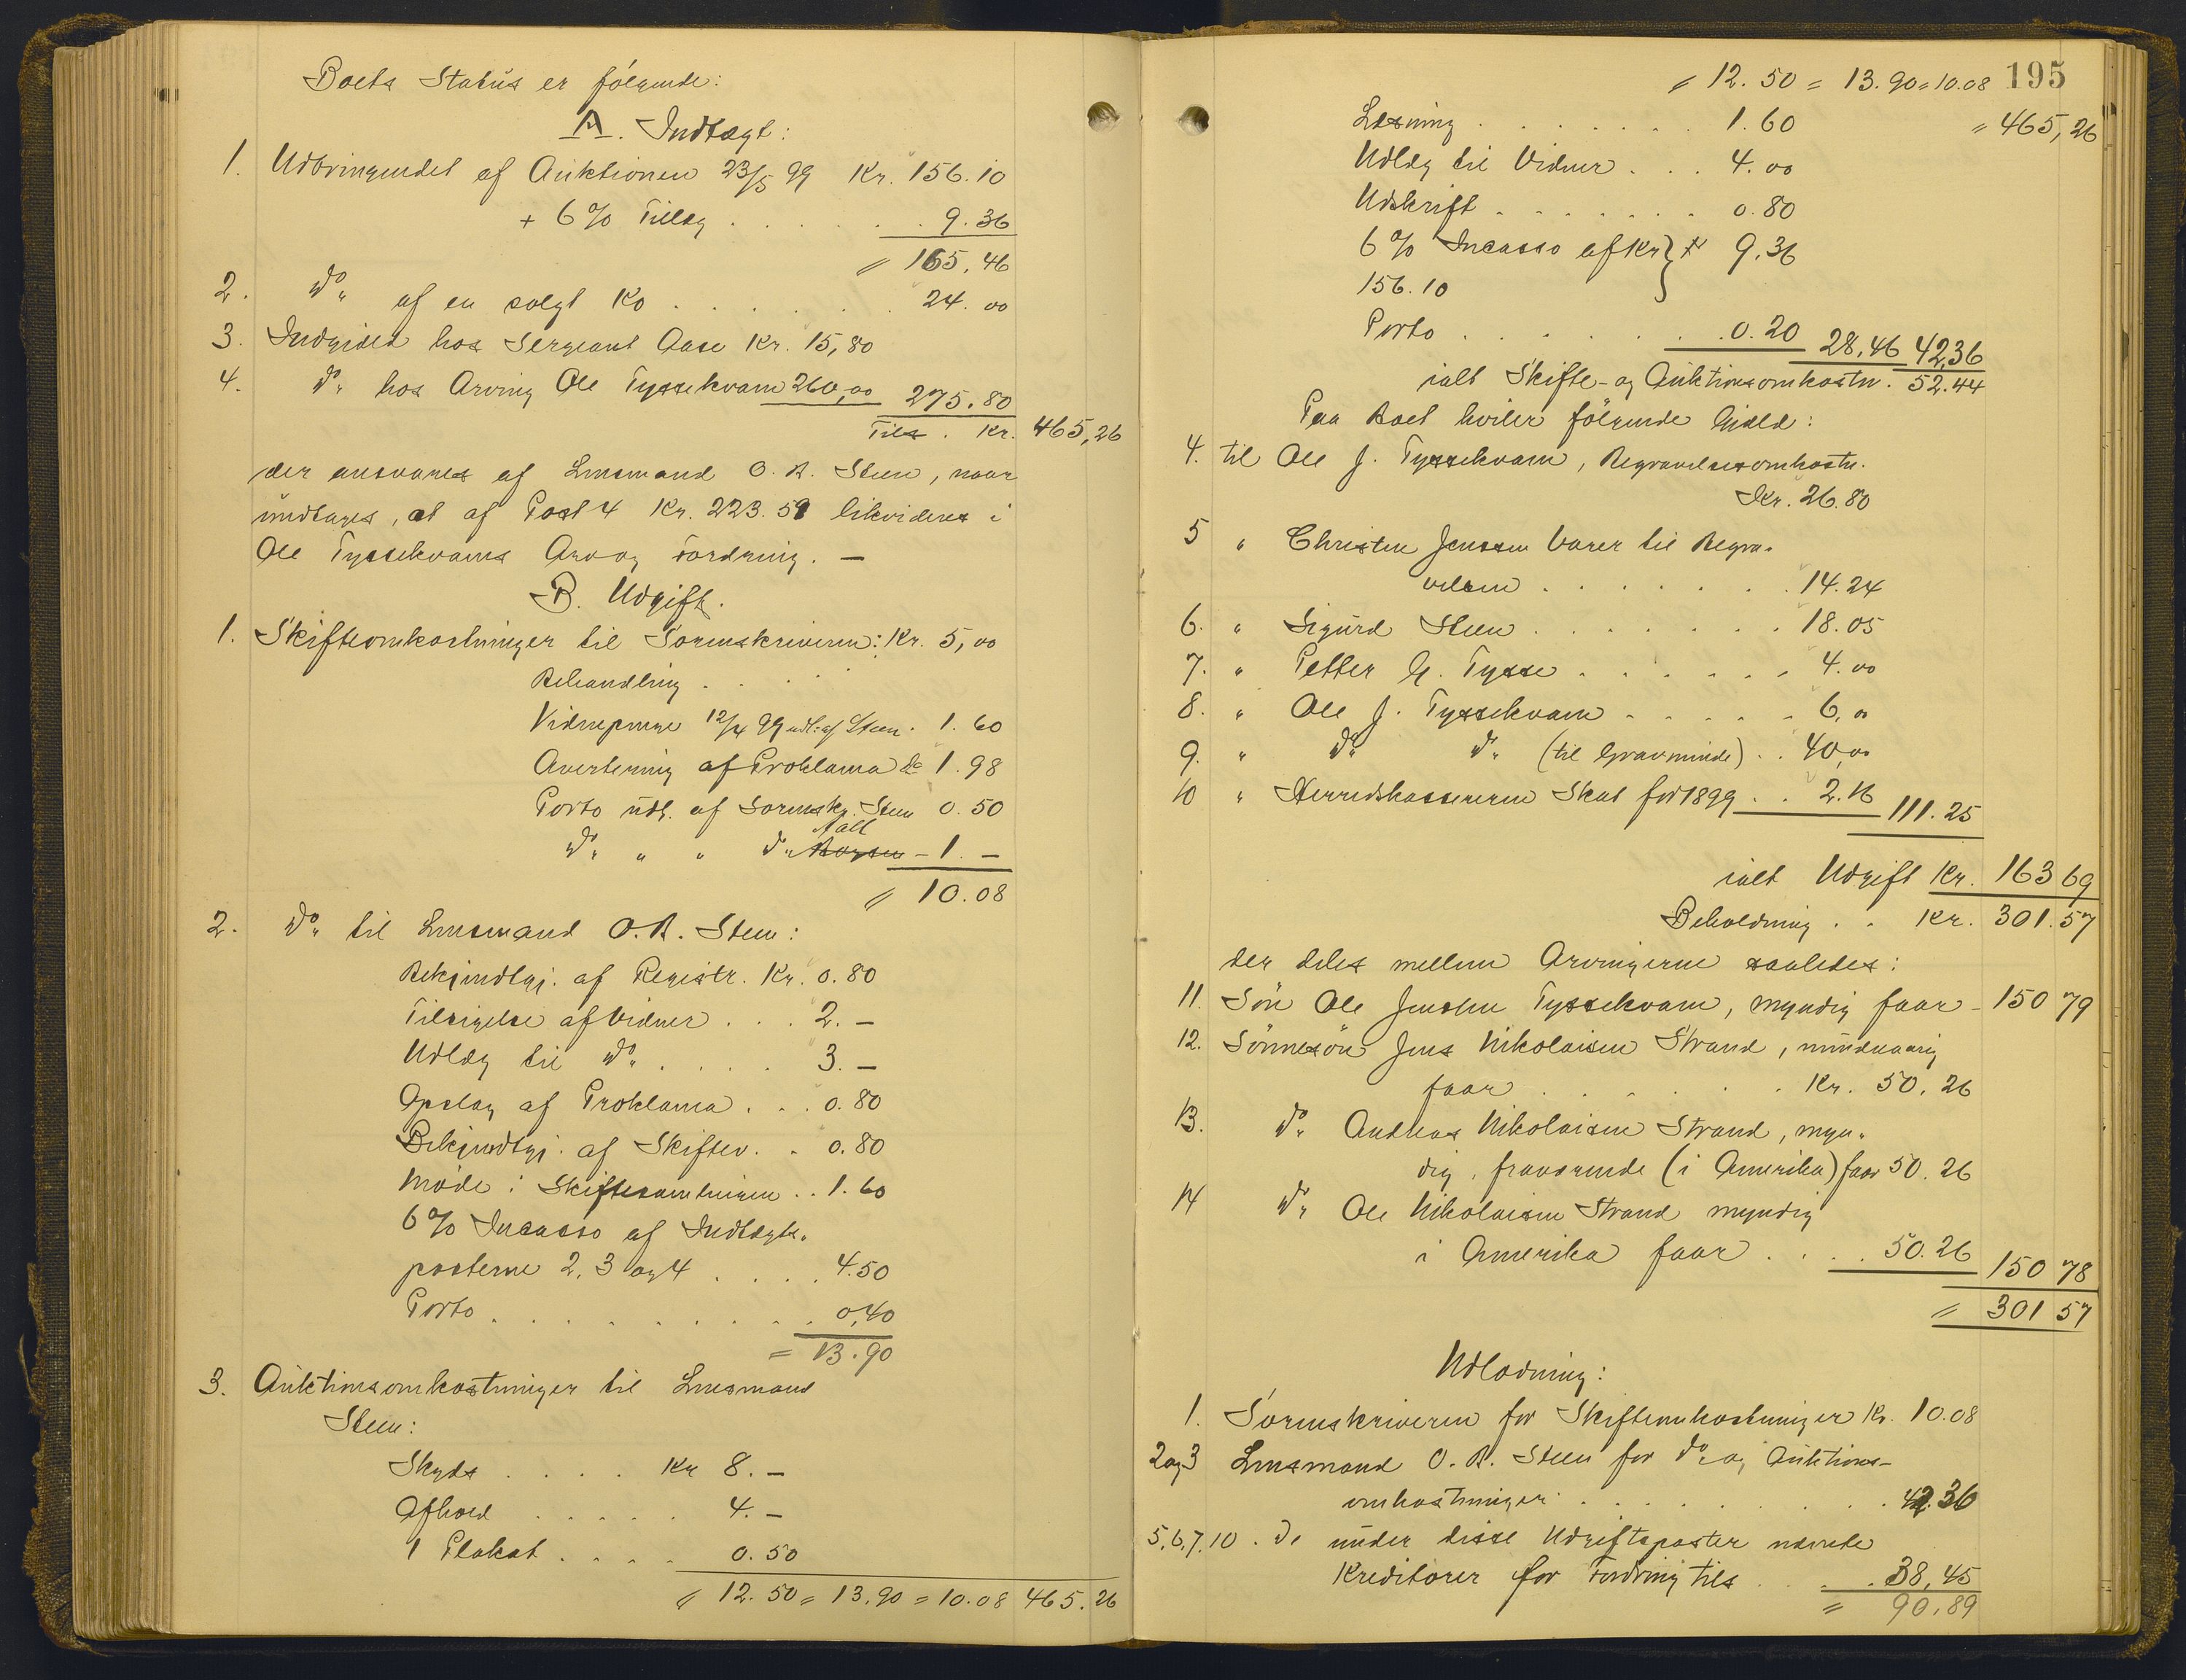 Boets Status er følgende:
A. Indtægt:
1. Udbringendet af Auktionen 23/5 99 Kr. 156.10
+ 6 % Tillæg . . . . . 9.36
= 165,46
2. do af en solgt Ko . . . . . . 24.00
3. Indgivet hos Sergeant Aase Kr. 15,80
4. do hos Arving Ole Tyssekvam 260,00 275.80
Tils. Kr. 465,26
der ansvares af Lensmand O. R. Steen, naar
undtages, at af Post 4 Kr. 223.59 likvideres i
Ole Tyssekvams Arv og Fordring. —
B. Udgift.
1. Skifteomkostninger til Sorenskriveren: Kr. 5,00
Behandling . . . .
Vidnepenge 12/4 99 udl. af Steen. 1.60
Avertering af Proklama do 1.98
Porto udl. af Sorenskr. Steen 0.50
do " " do Boysen Nall - 1. —
= 10.08
2. do til Lensmand O. R. Steen:
Bekjendtgj. af Registr. Kr. 0.80
Tilsigelse af Vidner . . . 2. —
Udlæg til do . . . . 3. —
Opslag af Proklama . . . 0.80
Bekjendtgj. af Skiftev. . 0.80
Møde i Skiftesamlingen . . 1.60
6 % Incasso af Indtægts-
posterne 2, 3 og 4 . . . . 4.50
Porto . . . . . . . . . 0,40
= 13.90
3. Auktionsomkostninger til Lensmand
Steen:
Skyds . . . . Kr 8. —
Afhold . . . . . 4. —
1 Plakat . . . . 0.50
= 12.50 = 13.90 = 10.08 465.26
= 12.50 = 13.90 = 10.08 195
Læsning . . . . . . . 1.60 = 465,26
Udlæg til Vidner . . . 4.00
Udskrift . . . . . . . 0.80
6 % Incasso af Kr } 9.36
156.10
Porto . . . . . . . 0.20 28,46 42,36
ialt Skifte- og Auktionsomkostn. 52.44
Paa Boet hviler følgende Gjæld:
4. til Ole J. Tyssekvam, Begravelsesomkostn.
Kr. 26.80
5 " Christen Jenssen Varer til Begra-
velsen . . . . . . . 14.24
6. " Sigurd Steen . . . . . . . 18.05
7. " Petter H. Tysse . . . . . . 4.00
8. " Ole J. Tyssekvam . . . . . 6,00
9. " do do (til Gravminde) . . 40,00
10 " Herredskassereren Skat for 1899 . . 2.16 111.25
ialt Udgift Kr. 163 69
Beholdning . . Kr. 301.57
der deles mellem Arvingerne saaledes:
11. Søn Ole Jensen Tyssekvam, myndig faar - 150 79
12. Sønnesøn Jens Nikolaisen Strand, mindreaarig
faar . . . . . . . Kr. 50.26
13. do Andreas Nikolaisen Strand, myn-
dig, fraværende (i Amerika) faar 50.26
14 do Ole Nikolaisen Strand myndig
i Amerika faar . . . . 50.26 150 78
= 301 57
Udlodning:
1. Sorenskriveren for Skifteomkostninger Kr. 10.08
2 og 3 Lensmand O. R. Steen for do og Auktions-
omkostninger . . . . . . . . 42.36
5, 6, 7, 10. De under disse Udgiftsposter nævnte
Kreditorer for Fordring tils . . . 38,45
= 90,89